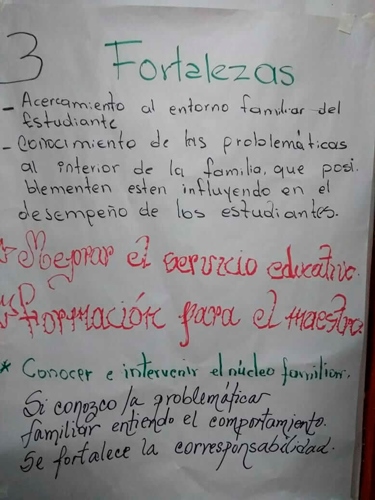 3
Fortalezas
- Acercamiento al entorno familiar del
Estudiante
- Conocimiento de las problemáticas
al interior de la familia, que posi
blementen esten influyendo en el
desempeño de los estudiantes.
Mejorar el servicio educativo.
Formación para el maestro
* Conocer e intervenir el núcleo familiar.
Si conozco la problemáticar
familiar entiendo el comportamiento.
Se fortalece la corresponsabilidad.